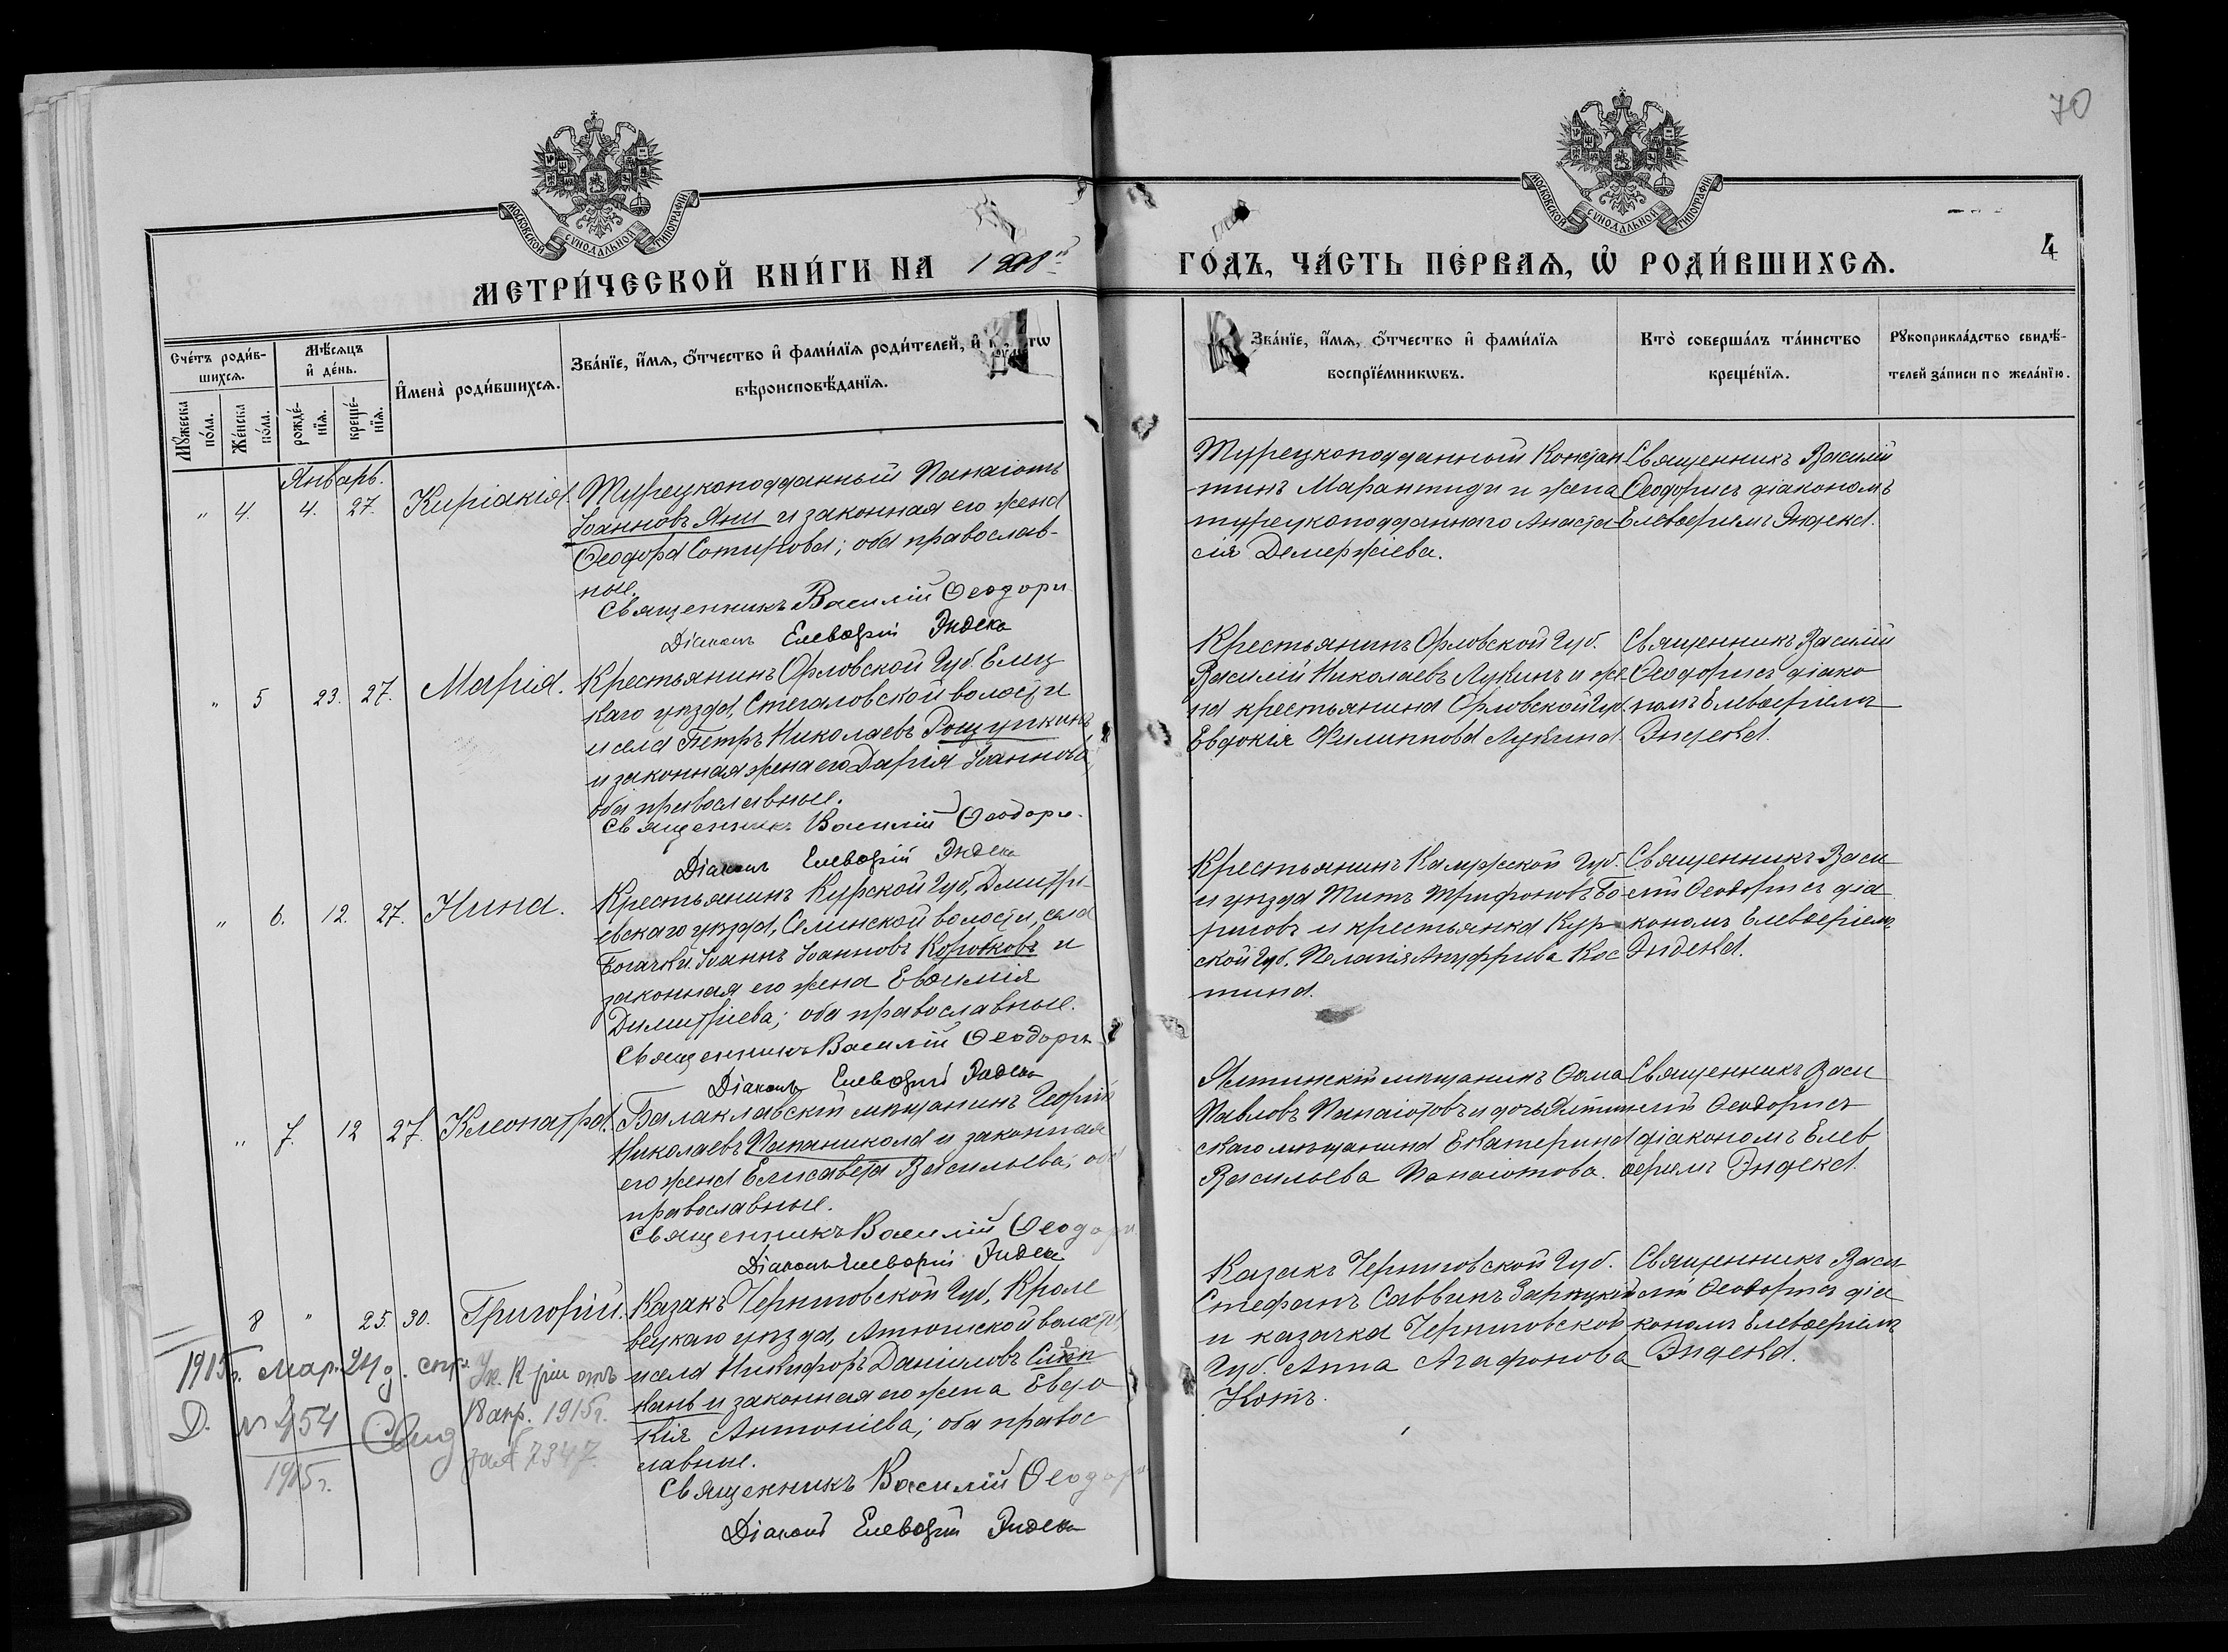 70
МОСКОВСКОЙ СѴНОДАЛЬНОЙ ТИПОГРАФІИ
МОСКОВСКОЙ СѴНОДАЛЬНОЙ ТИПОГРАФІИ
МЕТРИ́ЧЕСКОЙ КНИ́ГИ НА 1908й
ГО́ДЪ, ЧА́СТЬ ПЕ́РВАѦ, Ѡ҆ РОДИ́ВШИХСѦ.
4
Сче́тъ роди́в-
шихсѧ.
Мꙋ́жеска по́ла.
Же́нска по́ла.
Мѣ́сѧцъ
и҆ де́нь.
рожде́-
нїѧ.
креще́-
нїѧ.
И҆мена̀ роди́вшихсѧ.
Зва́нїе, и҆́мѧ, ѻ҆́тчество и҆ фами́лїѧ роди́телей, и҆
вѣроисповѣ́данїѧ.
Зва́нїе, и҆́мѧ, ѻ҆́тчество и҆ фами́лїѧ
воспрїе́мникѡвъ.
Кто̀ соверша́лъ та́инство
креще́нїѧ.
Рꙋкоприкла́дство свидѣ́-
телей за́писи по жела́нїю.
Январь.
" 4. 4. 27. Киріакія.
Турецкоподданный Панаіотъ
Іоанновъ Яни и законная его жена
Ѳеодора Сотирова; оба православ-
ные.
Священникъ Василій Ѳеодори
Діаконъ Елевѳерій Эндека
Турецкоподданный Констан
тинъ Марантиди и жена
турецкоподданнаго Анаста-
сія Демержіева.
Священникъ Василій
Ѳеодорисъ діакономъ
Елевѳеріемъ Эндека.
" 5 23. 27. Марія.
Крестьянинъ Орловской Губ. Елец
каго уѣзда, Стегаловской волости
и села Петръ Николаевъ Рощупкинъ
и законная жена его Дарія Іоаннова,
оба православные.
Священникъ Василій Ѳеодори.
Діаконъ Елевѳерій Эндека
Крестьянинъ Орловской Губ.
Василій Николаевъ Лукинъ и же
на крестьянина Орловской Губ.
Евдокія Филиппова Лукина.
Священникъ Василій
Ѳеодорисъ діако
номъ Елевѳеріемъ
Эндека.
" 6. 12. 27. Нина.
Крестьянинъ Курской Губ. Дмитрі-
евскаго уѣзда, Селинской волости, села
Богачки Іоаннъ Іоанновъ Коротковъ и
законная его жена Евѳимія
Димитріева; оба православные.
Священникъ Василій Ѳеодори
Діаконъ Елевѳерій Эндека
Крестьянинъ Калужской Губ.
и уѣзда Титъ Трифоновъ Бо-
рисовъ и крестьянка Кур-
ской Губ. Пелагія Ануфріева Кос
тина.
Священникъ Васи
лій Ѳеодорисъ діа
кономъ Елевѳеріемъ
Эндека.
" 7. 12 27. Клеопатра.
Балаклавскій мѣщанинъ Георгій
Николаевъ Папаникола и законная
его жена Елисавета Васильева; оба
православные.
Священникъ Василій Ѳеодори
Діаконъ Елевѳерій Эндека
Ялтинскій мѣщанинъ Ѳома
Павловъ Панаіотовъ и дочь Ялтин
скаго мѣщанина Екатерина
Васильева Панаіотова.
Священникъ Васи
лій Ѳеодорисъ
діакономъ Елев
ѳеріемъ Эндека.
8 " 25. 30. Григорій.
Казакъ Черниговской Губ, Кроле
вецкаго уѣзда, Атюшской волости
и села Никифоръ Даніиловъ
и законная его жена Евдо
кія Антоніева; оба правос
лавные.
Священникъ Василій Ѳеодори
Діаконъ Елевѳерій Эндека
Казакъ Черниговской Губ.
Стефанъ Саввинъ
и казачка Черниговской
Губ. Анна Агафонова
Котъ.
Священникъ Васи
лій Ѳеодорисъ діа
кономъ Елевѳеріемъ
Эндека.
1915г. Мар. 24 д.
Д. № 454
1915г.
Ук. К-ріи отъ
18 апр. 1915г.
за № 7347.